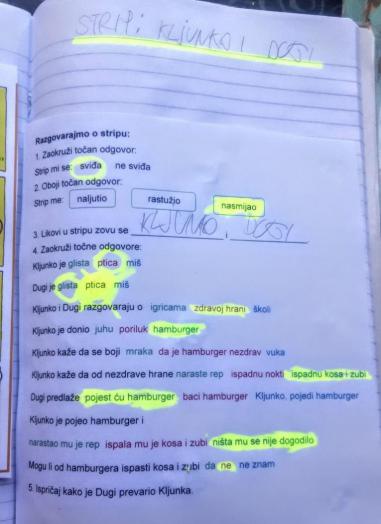 STRIP: KLJUNKO I DUGI
Razgovarajmo o stripu:
1. Zaokruži točan odgovor:
Strip mi se: sviđa ne sviđa
2. Oboji točan odgovor:
Strip me: naljutio rastužio nasmijao
3. Likovi u stripu zovu se KLJUNKO, DUGI
4. Zaokruži točne odgovore:
Kljunko je glista ptica miš
Dugi je glista ptica miš
Kljunko i Dugi razgovaraju o igricama zdravoj hrani školi
Kljunko je donio juhu poriluk hamburger
Kljunko kaže da se boji mraka da je hamburger nezdrav vuka
Kljunko kaže da od nezdrave hrane naraste rep ispadnu nokti ispadnu kosa i zubi
Dugi predlaže pojest ću hamburger baci hamburger Kljunko, pojedi hamburger
Kljunko je pojeo hamburger i
narastao mu je rep ispala mu je kosa i zubi ništa mu se nije dogodilo
Mogu li od hamburgera ispasti kosa i zubi da ne ne znam
5. Ispričaj kako je Dugi prevario Kljunka.